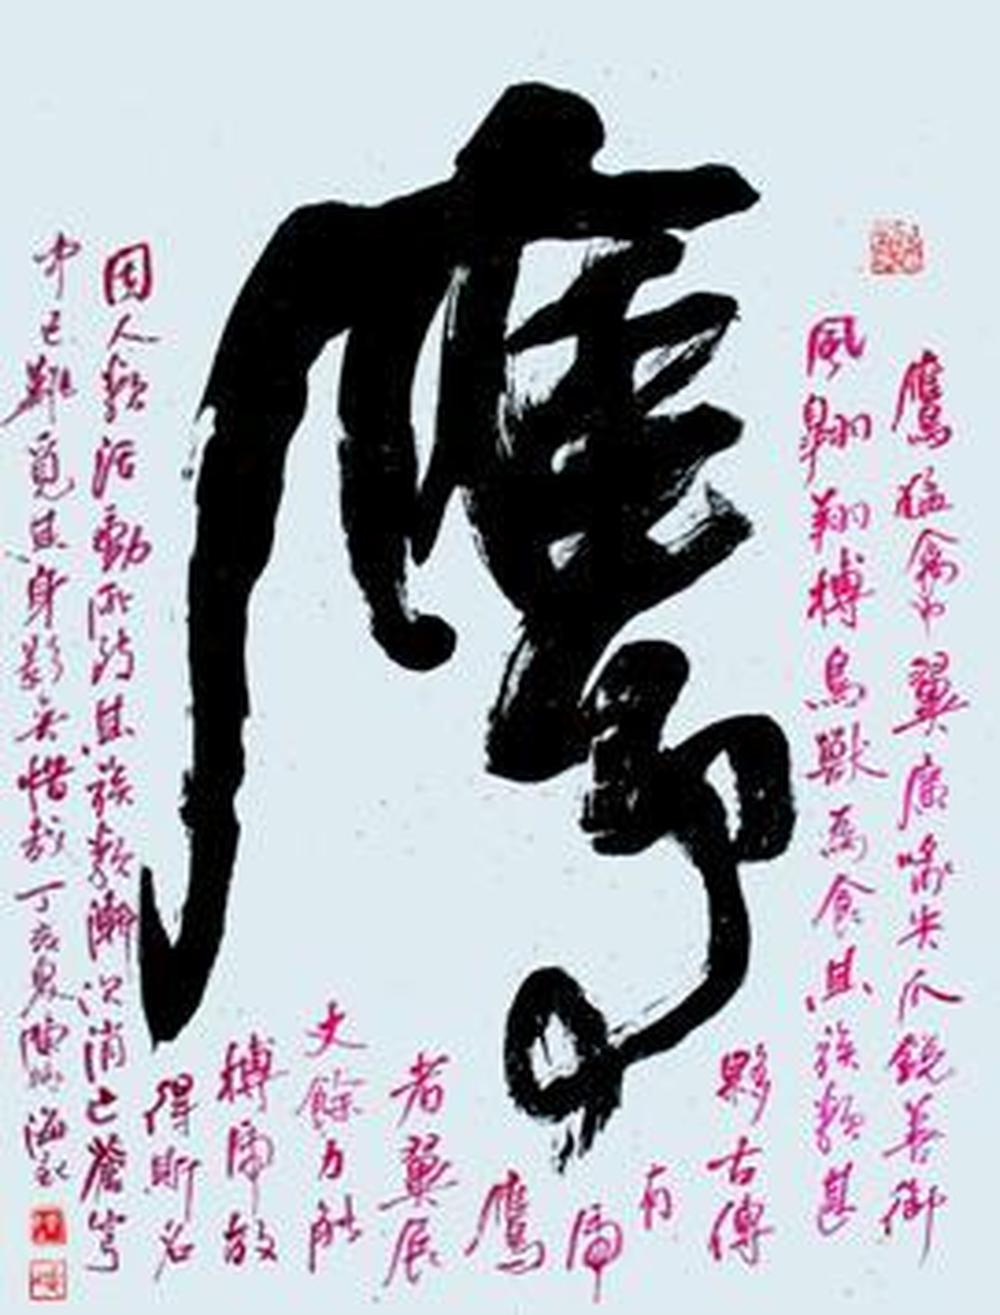 鷹
鷹猛禽也翼廣喙尖爪銳善御
風翱翔搏鳥獸爲食其族類甚
夥古傳
有
虎
鷹
者翼展
丈餘力能
搏虎故
得斯名
因人類活動所致其族類瀕於消亡蒼穹
中已難覓其身影矣惜哉丁亥